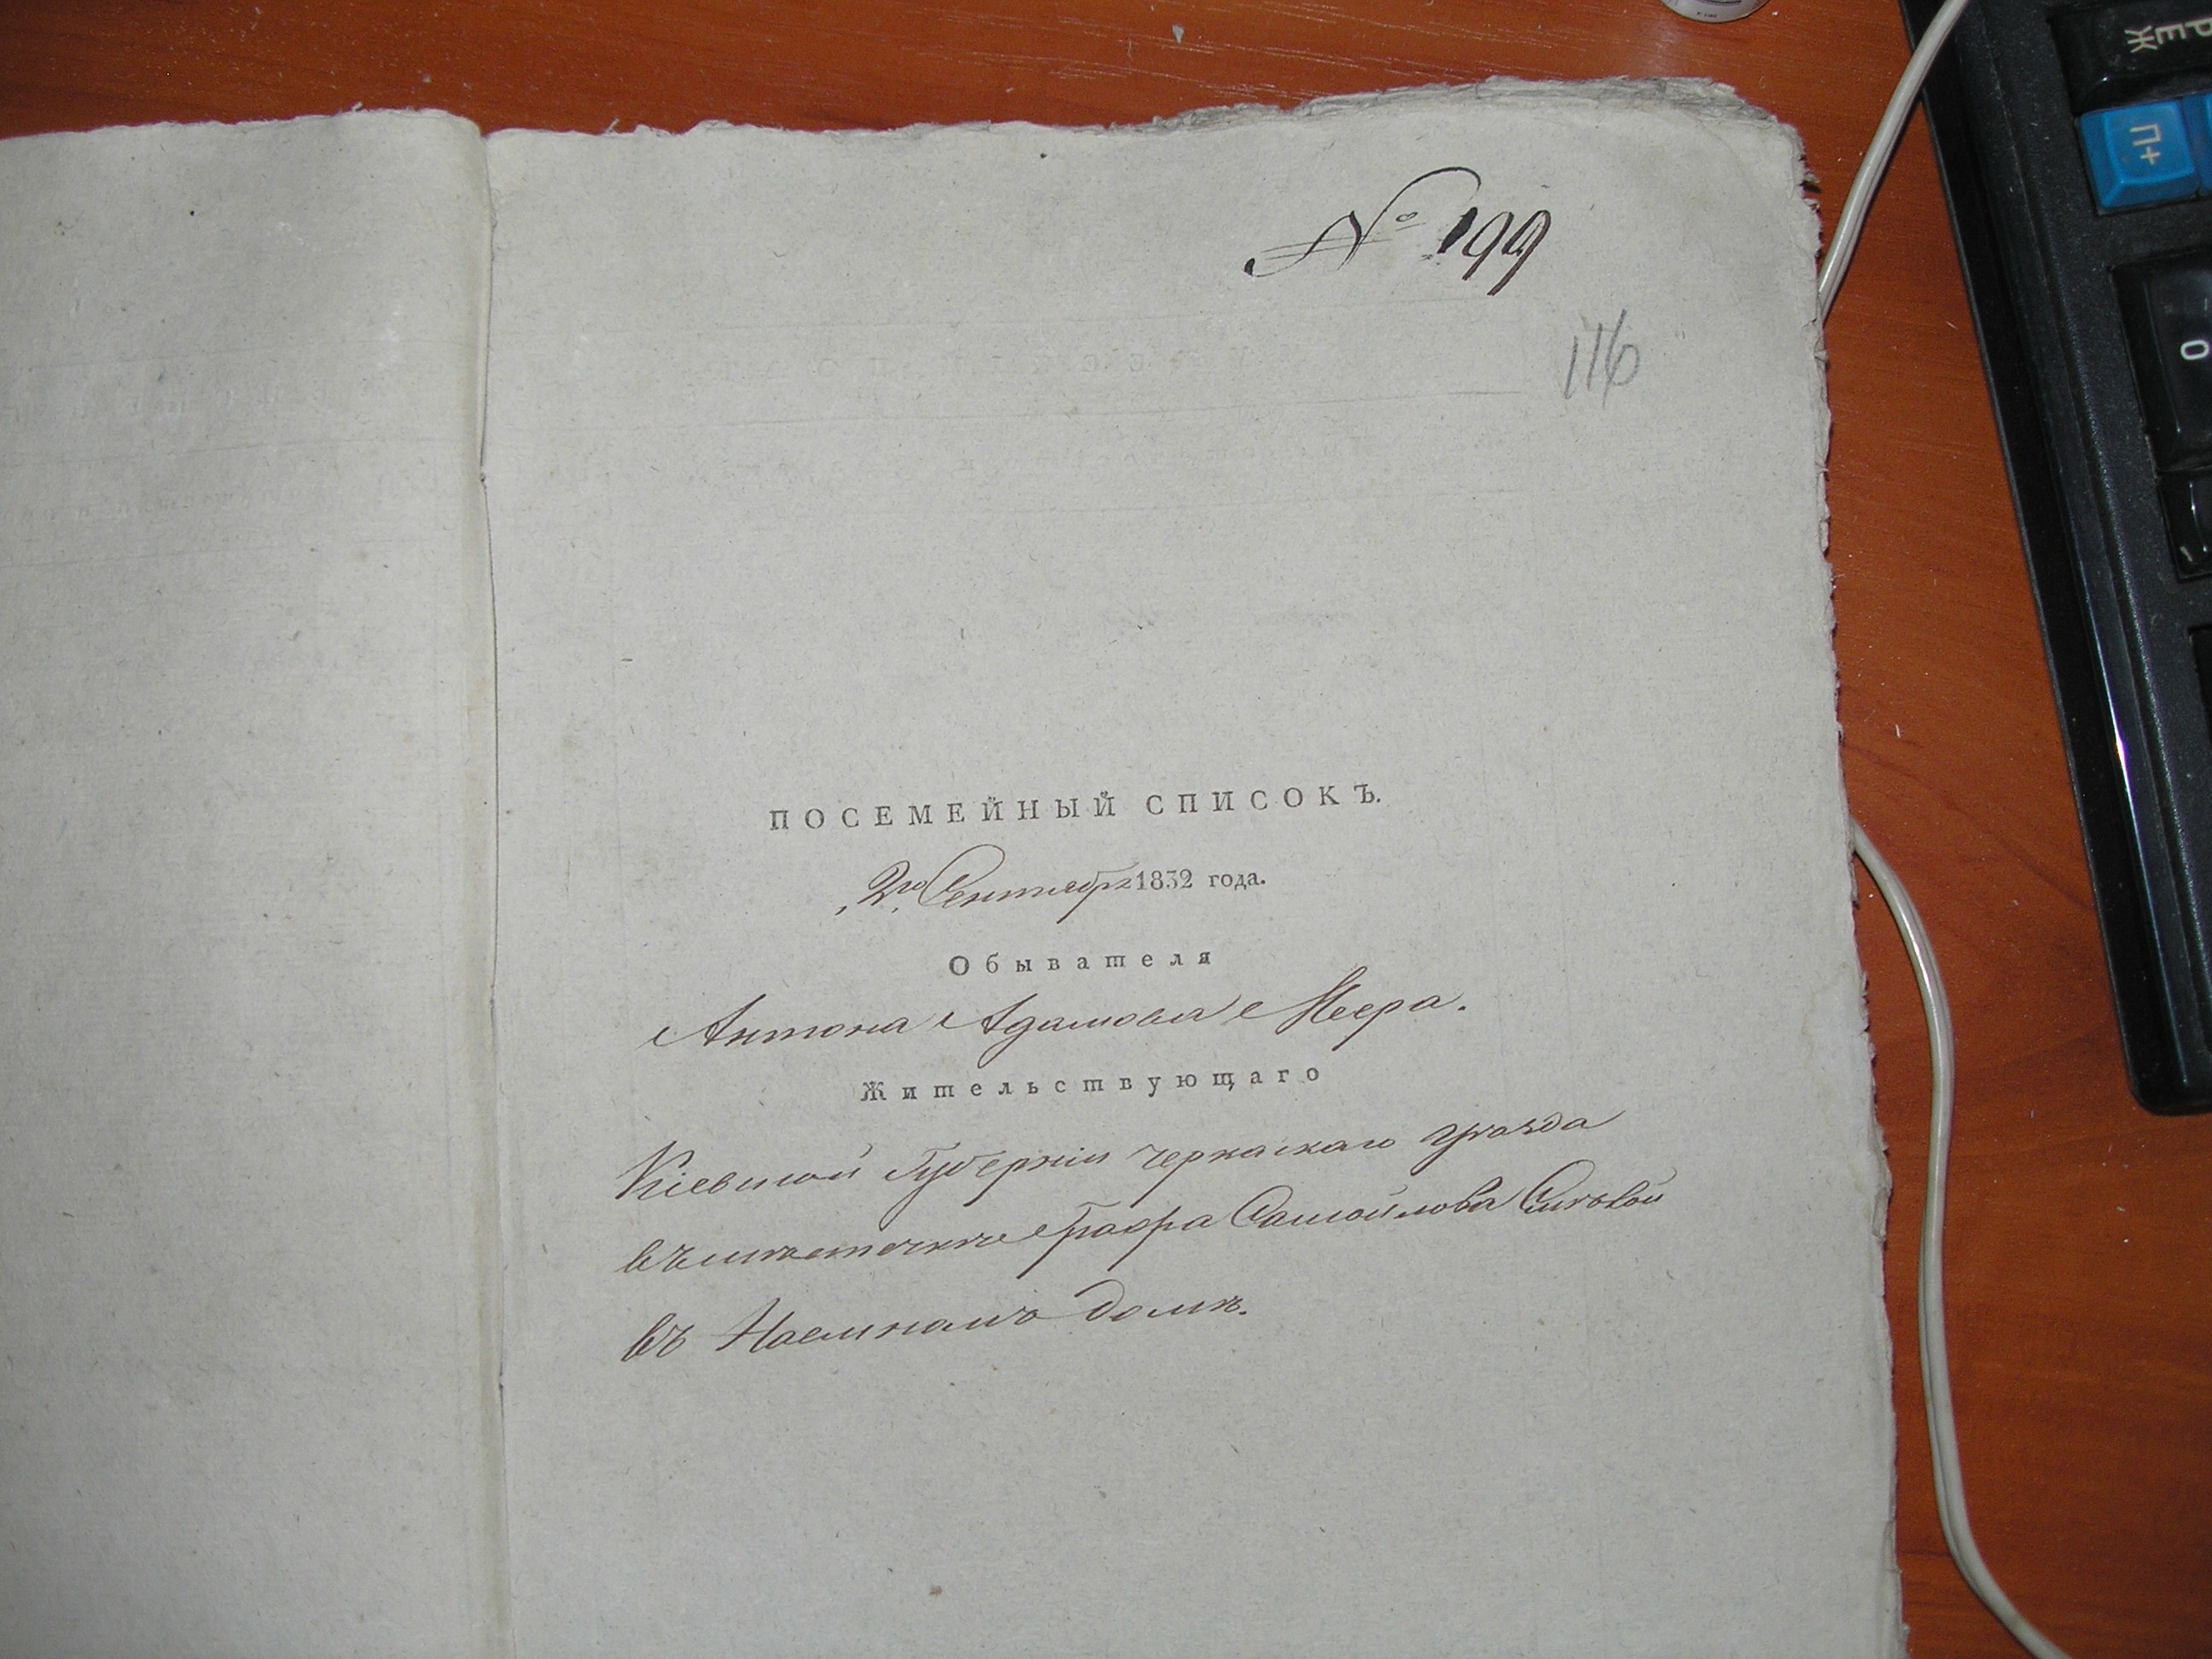 № 199
116
ПОСЕМЕЙНЫЙ СПИСОКЪ.
2го Сентября 1832 года.
Обывателя
Антона Адамова Меера.
Жительствующаго
Кіевской Губерніи Черкаскаго уѣзда
въ мѣстечкѣ Графа Самойлова Смѣлой
въ Наемномъ домѣ.
РЕЖ
П+
0